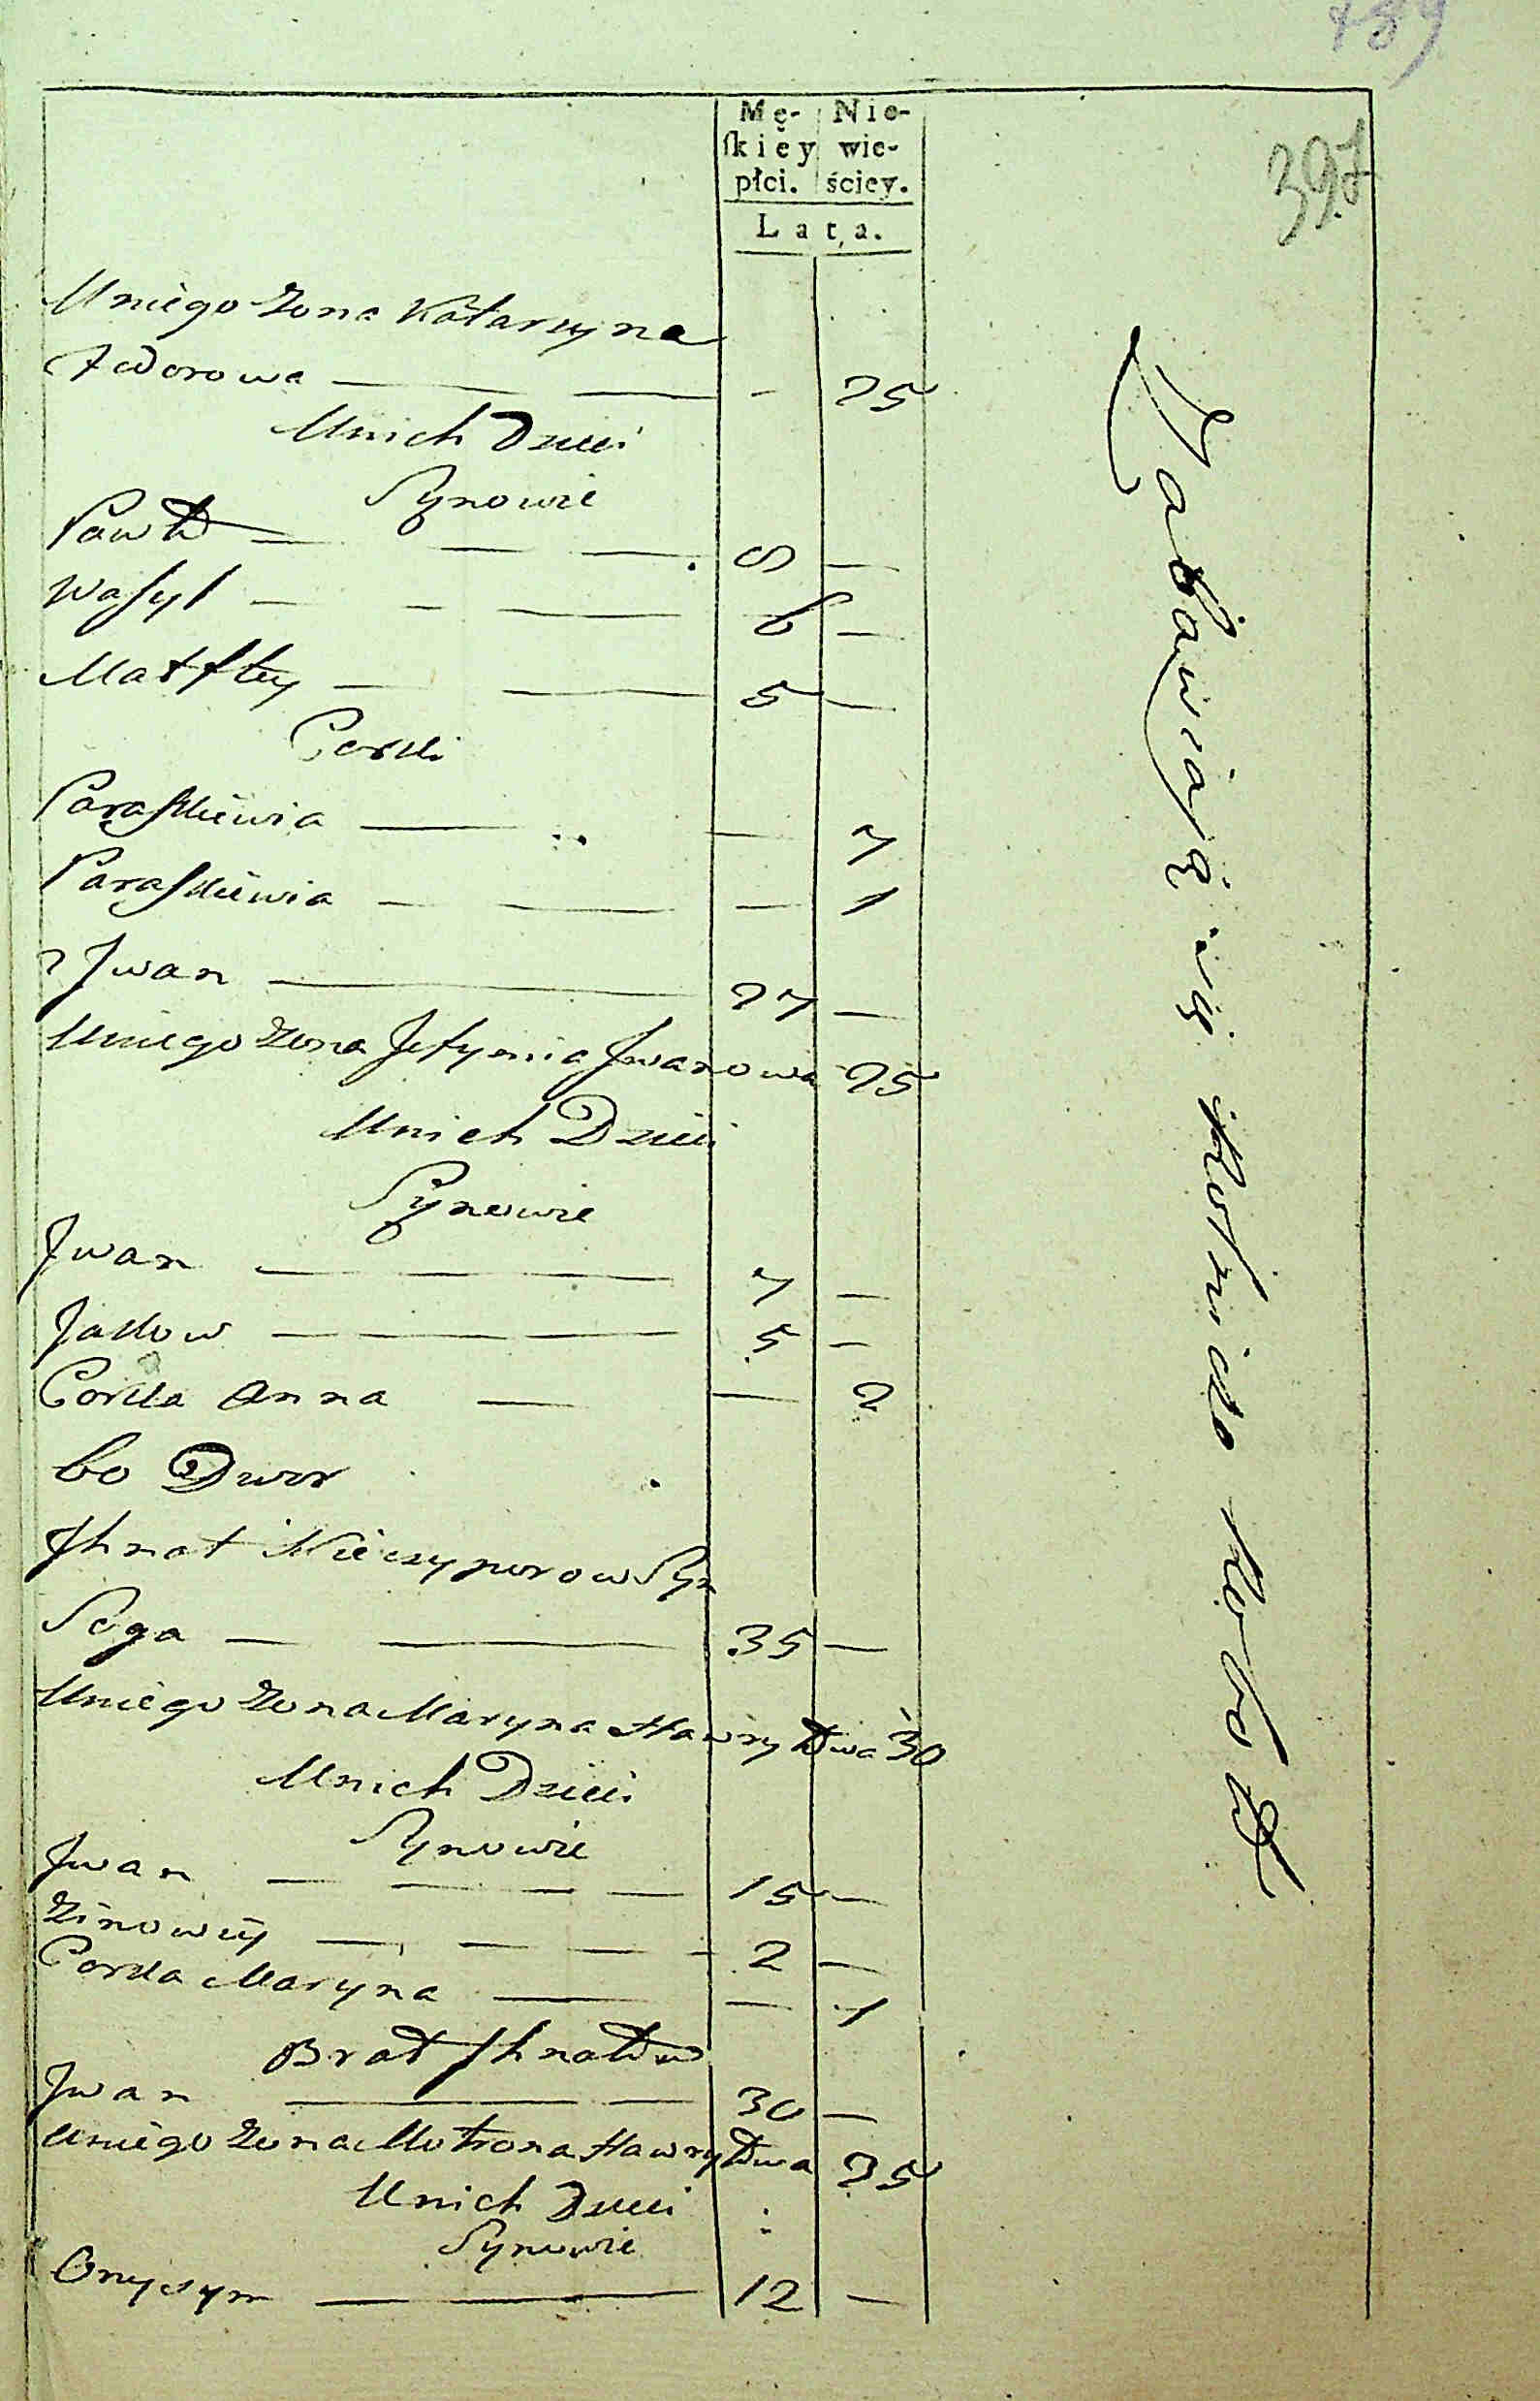 189
397
Mę- Nie-
ſkiey wie-
płci. ściey.
Lata.
Uniego Żona Katarzyna
Fedorowa — — - 25
Unich Dzieci
Synowie
Paweł — — — 8 —
Wasyl — - — 6 —
Matfiey — — 5 —
Corki
Paraskiewia — — 7
Paraskiewia — — — 1
2 Jwan — 27 —
Uniego Żona Jefymia Jwanowa 25
Unich Dzieci
Synowie
Jwan — — — 7 —
Jakow — — — 5 —
Corka Anna — — 2
6o Dwor
Jhnat Nieczyporow Syn
Soga — — 35 —
Uniego Żona Maryna Hawryłowa 30
Unich Dzieci
Synowie
Jwan — — — — 15 —
Zinowiy — — — - 2 —
Corka Maryna — — 1
Brat Jhnatow
Jwan — — 30 —
Uniego Żona Motrona Hawryłowa 35
Unich Dzieci
Synowie
Onysym — — 12 —
Zabawiaią się Rolniczo Robotą